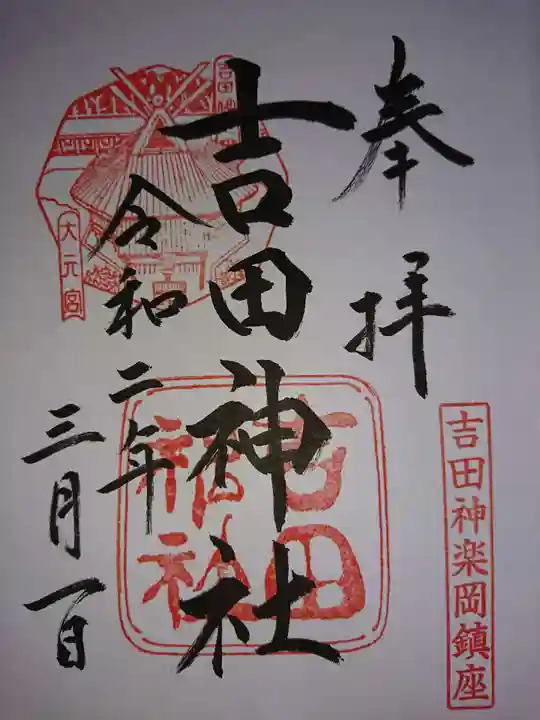 奉拝
吉田神楽岡鎮座
吉田神社
吉田神社
吉田神
大元宮
令和二年
三月一日